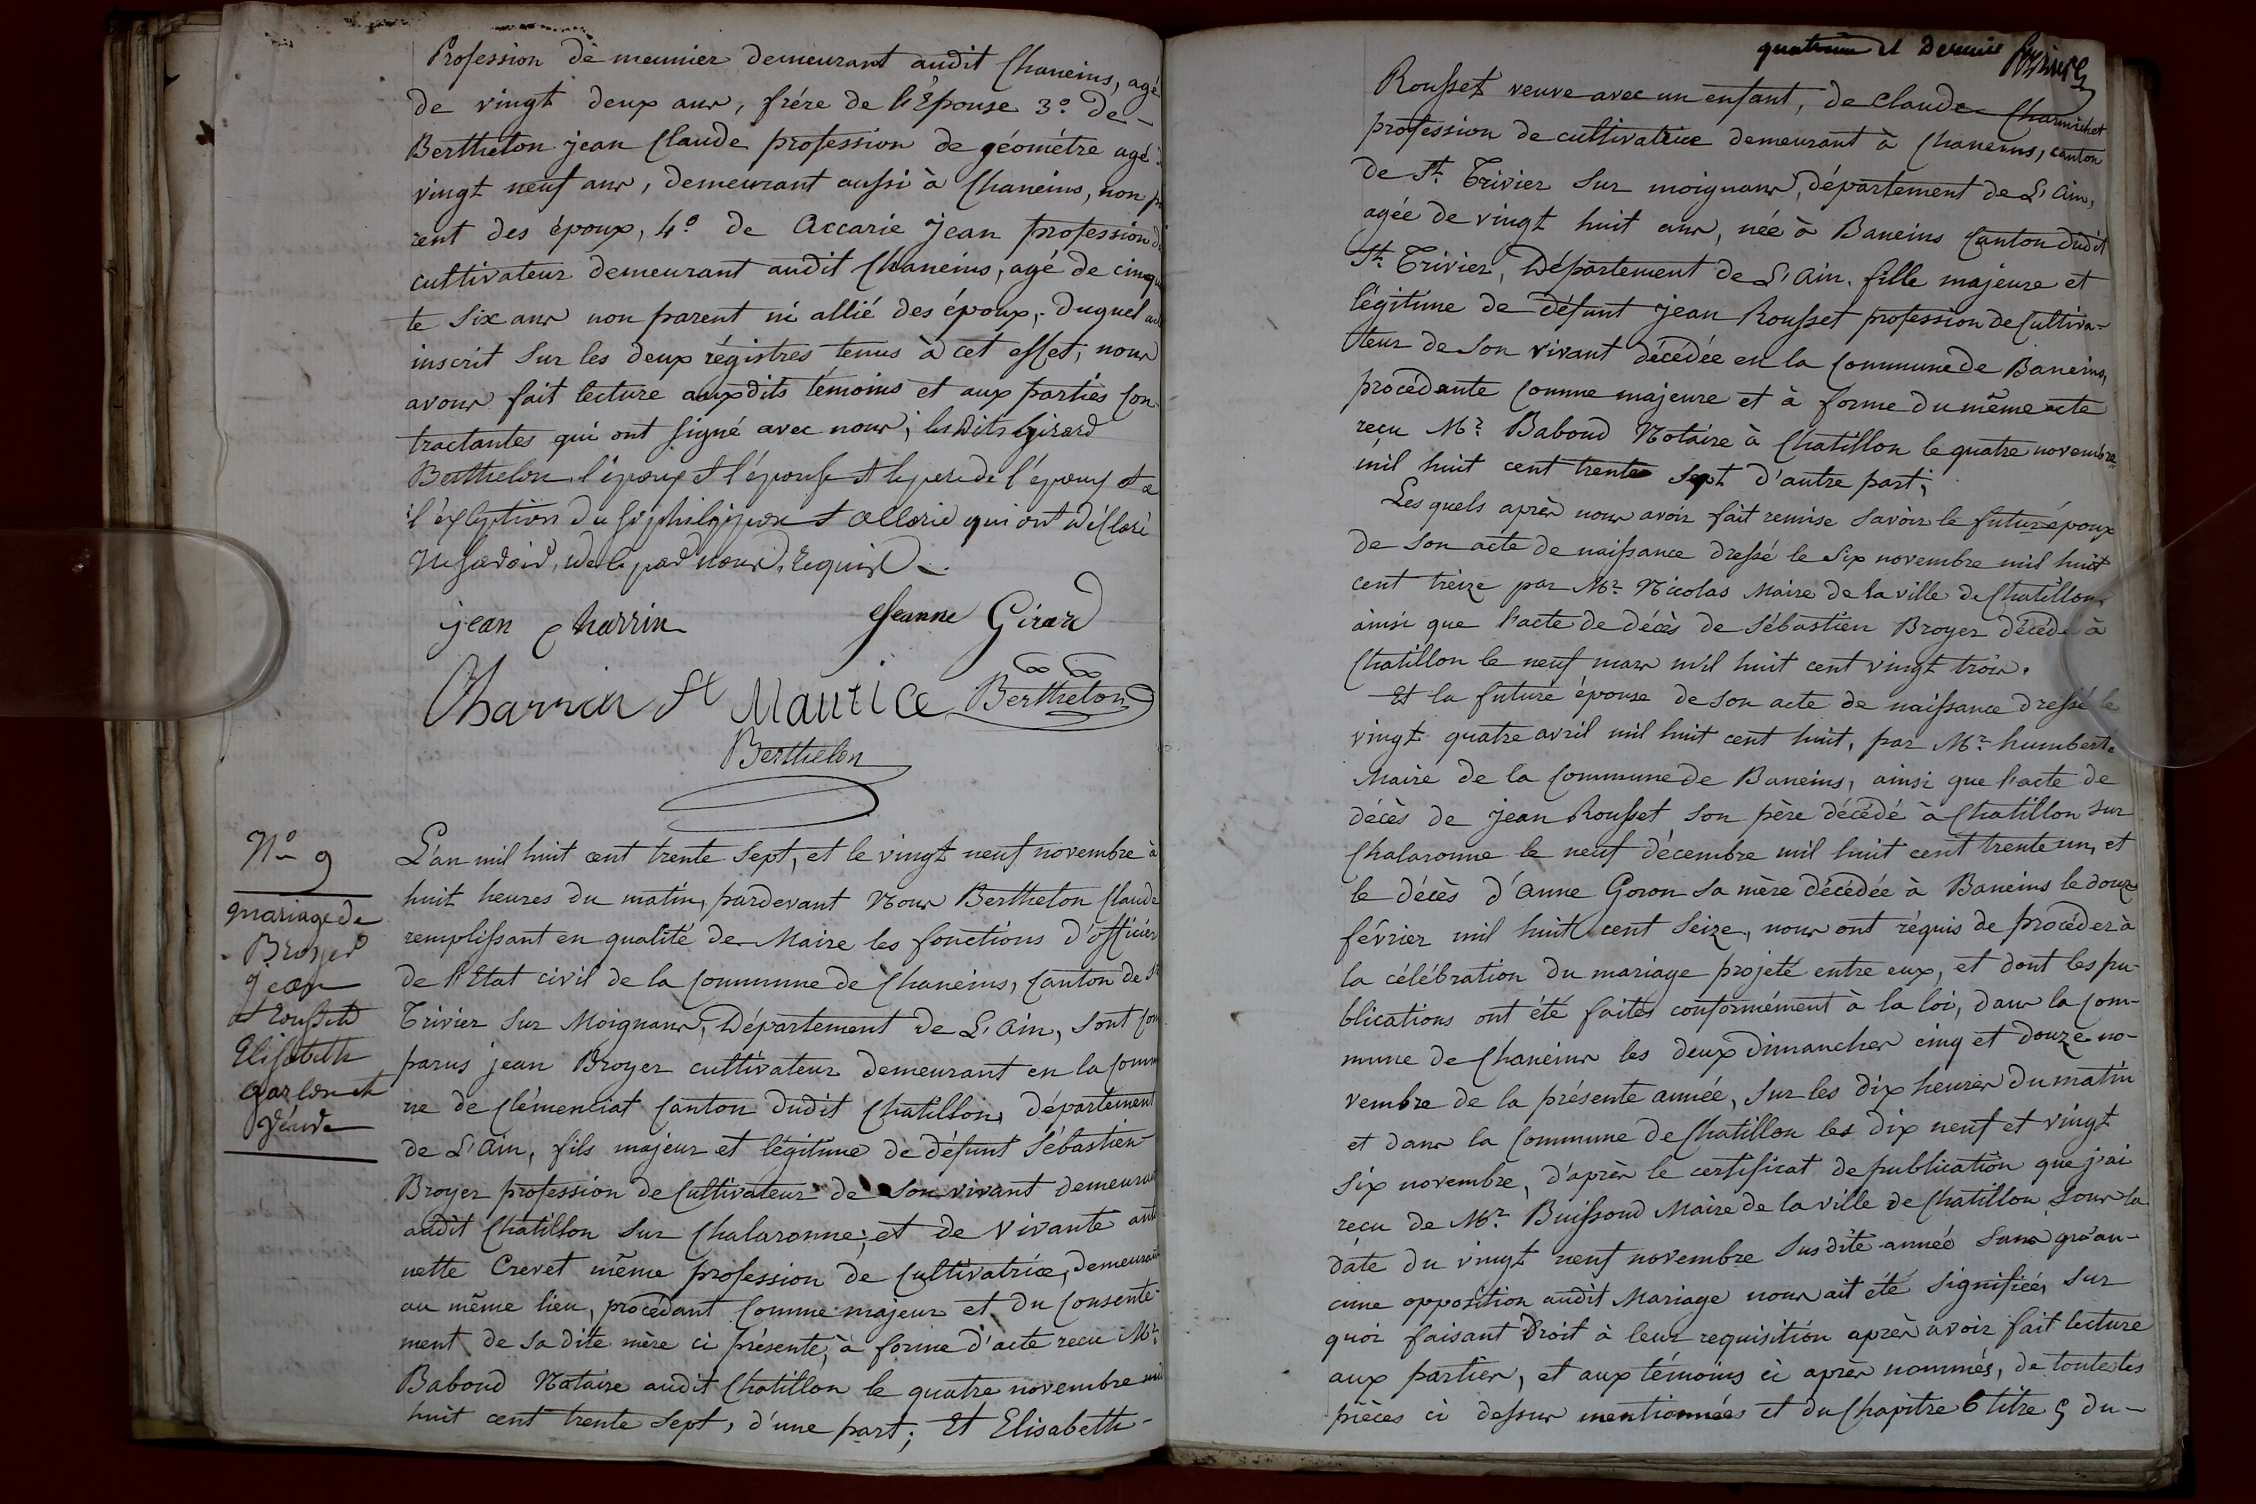 Profession de meunier demeurant audit Chaneins, agé
de vingt deux ans, frére de l'Épouse 3.º de-
Bertheton jean Claude profession de géométre agé
vingt neuf ans, demeurant aussi à Chaneins, non pa
rent des époux, 4.º de accarie jean profession d
cultivateur demeurant audit Chaneins, agé de cinqu
te six ans non parent ni allié des époux, Duquel
inscrit sur les deux régistres tenus à cet effet, nous
avons fait lecture auxdits témoins et aux parties con
tractantes qui ont signé avec nous; lesdits girard
Berthelon, l'époux et l'épouse et le pere de l'époux et a
l'exception du qui ont déclaré
ne savoir, de ce par nous, requis.
jean charrin
Jeanne Girard
Charrin St Maurice Bertheton
Berthelon
Nº 9
mariage de
Broyer
jean
et rousset
Elisabeth
veuve
L'an mil huit cent trente sept, et le vingt neuf novembre à
huit heures du matin, pardevant Nous Bertheton Claude
remplissant en qualité de Maire les fonctions d'officier
de l'Etat civil de la commune de Chaneins, canton de St
Trivier sur Moignans, Département de L'ain, sont com
parus jean Broyer cultivateur demeurant en la commu
ne de Clémenciat canton dudit Chatillon, département
de L'ain, fils majeur et légitime de défunt Sébastien
Broyer profession de Cultivateur de son vivant demeurant
audit Chatillon sur Chalaronne; et de vivante ant
nette Crevet même profession de Cultivatrice, demeurant
au même lieu, procédant comme majeur et du consente-
ment de sa dite mère ci présente, à forme d'acte recu Mr.
Baboud Notaire audit Chatillon le quatre novembre mil
huit cent trente sept, d'une part; Et Elisabeth-
quatrieme et derniere
Rousset veuve avec un enfant, de claude Charmichet
profession de cultivatrice demeurant à Chaneins, canton
de St. Trivier sur moignans, département de L'ain,
agée de vingt huit ans, née à Baneins canton dudit
St. Trivier, Département de L'ain. fille majeure et
légitime de défunt jean Rousset profession de Cultiva-
teur de son vivant décédée en la commune de Baneins,
procédante comme majeure et à forme du même acte
reçu Mr. Baboud Notaire à Chatillon le quatre novembre
mil huit cent trente sept d'autre part;
Les quels après nous avoir fait remise savoir le futur époux
de son acte de naissance dressé le six novembre mil huit
cent treize par Mr. Nicolas Maire de la ville de Chatillon
ainsi que l'acte de décès de Sébastien Broyer décédé à
Chatillon le neuf mars mil huit cent vingt trois.
Et la future épouse de son acte de naissance dressé le
vingt quatre avril mil huit cent huit, par Mr. humbert
Maire de la commune de Baneins, ainsi que l'acte de
décès de jean Rousset son père décédé à Chatillon sur
Chalaronne le neuf décembre mil huit cent trente un, et
le décès d'anne Goron sa mère décédée à Baneins le douze
février mil huit cent seize, nous ont réquis de procéder à
la célébration du mariage projeté entre eux, et dont les pu-
blications ont été faites conformément à la loi, dans la com-
mune de Chaneins les deux dimanches cinq et douze no-
vembre de la présente année, sur les dix heures du matin
et dans la commune de Chatillon les dix neuf et vingt
six novembre, d'après le certificat de publication que j'ai
reçu de Mr. Buissoud Maire de la ville de Chatillon sous la
date du vingt neuf novembre susdite année sans qu'au-
cune opposition audit Mariage nous ait été signifiée, sur
quoi faisant droit à leur requisition après avoir fait lecture
aux parties, et aux témoins ci après nommés, de toutes les
pièces ci dessus mentionnées et du Chapitre 6 titre 5 du-